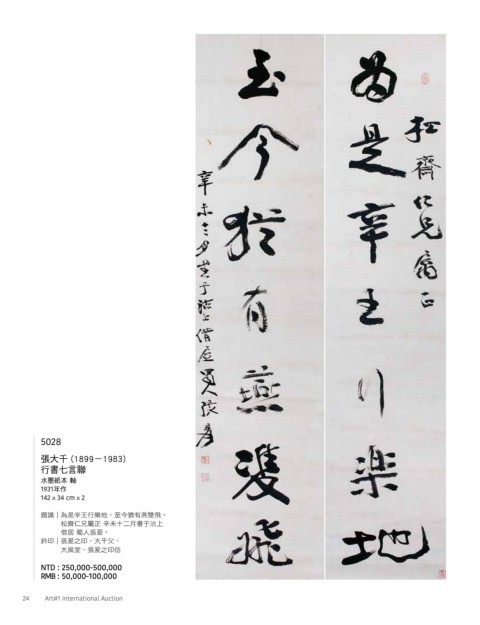 為是辛王行楽地
松齋仁兄屬正
玉今猶有燕雙飛
辛未十二月書于沽上借居蜀人張爰
5028
張大千 (1899－1983)
行書七言聯
水墨紙本 軸
1931年作
142 x 34 cm x 2
題識｜為是辛王行樂地，至今猶有燕雙飛。
松齋仁兄屬正 辛未十二月書于沽上
借居 蜀人張爰。
鈐印｜張爰之印、大千父、
大風堂、張爰之印信
NTD : 250,000-500,000
RMB : 50,000-100,000
24 Art#1 International Auction